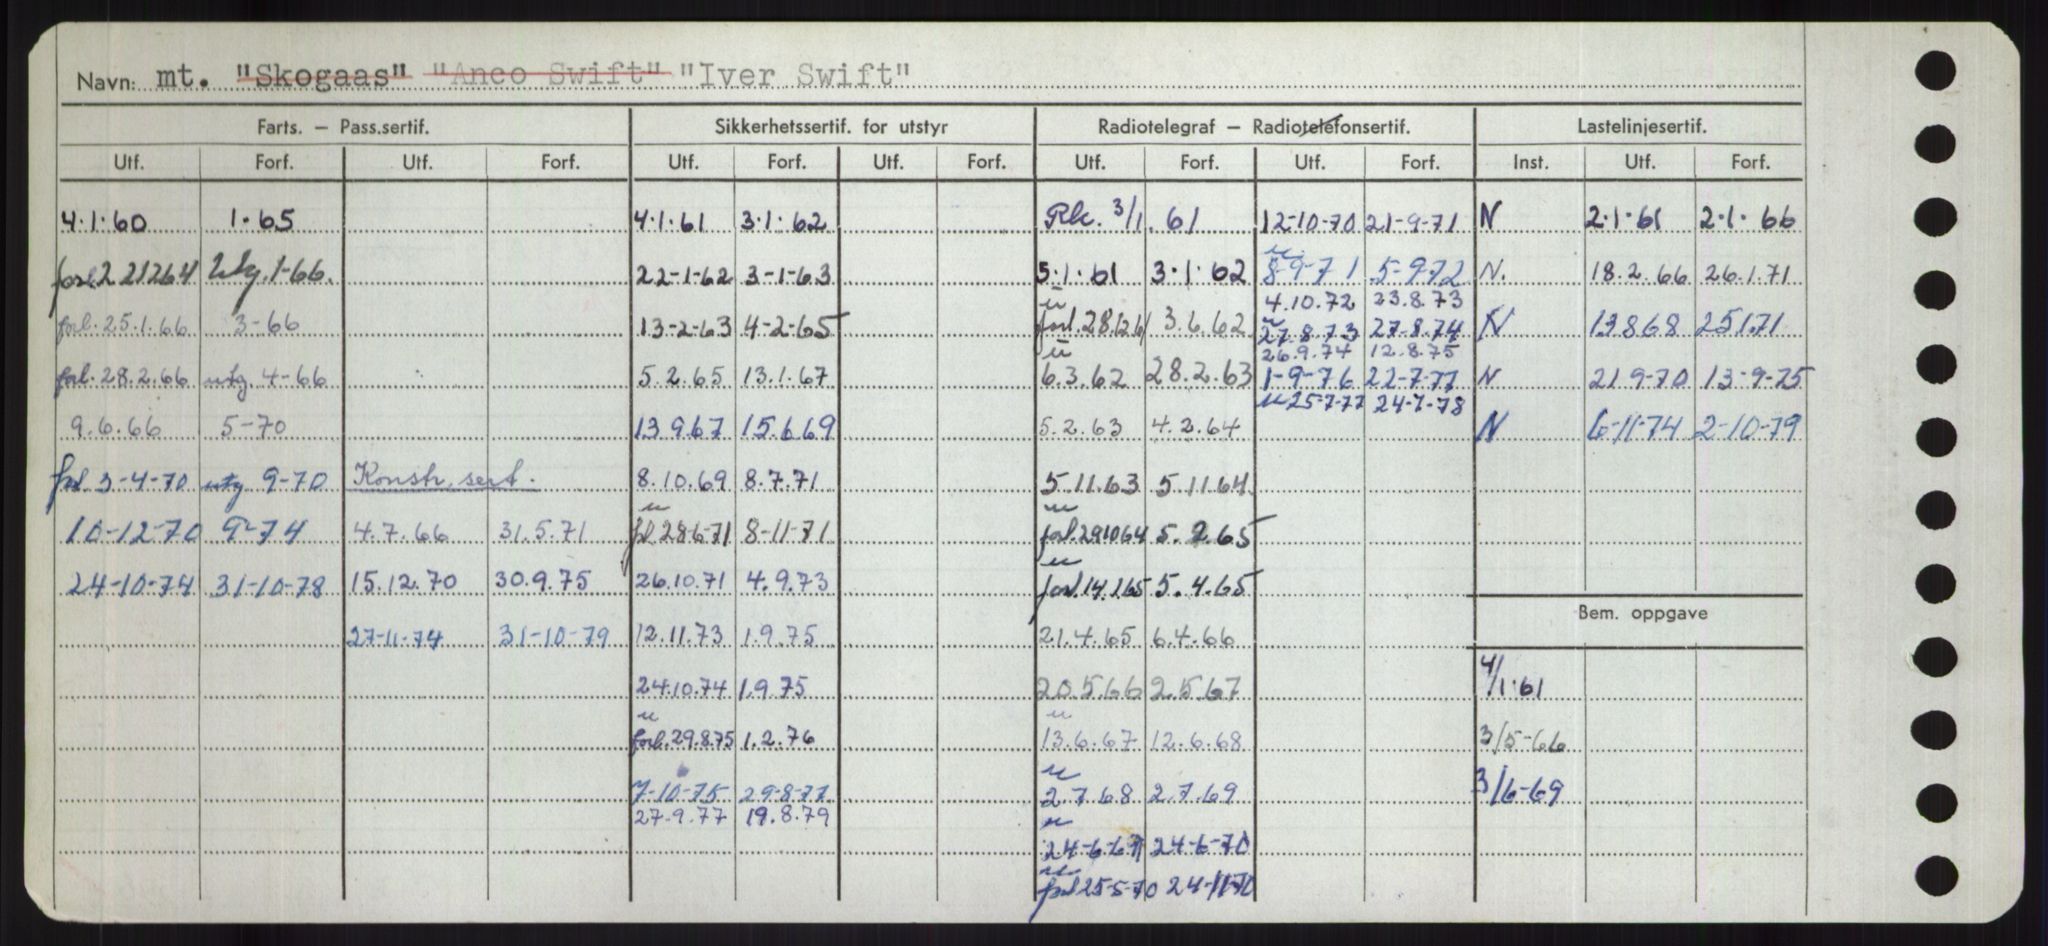 Navn: mt. "Skogaas" "Anco Swift" "Iver Swift"
Farts. – Pass.sertif. Sikkerhetssertif. for utstyr Radiotelegraf – Radiotelefonsertif. Lastelinjesertif.
Utf. Forf. Utf. Forf. Utf. Forf. Utf. Forf. Utf. Forf. Utf. Forf. Inst. Utf. Forf.
4.1.60 1.65 4.1.61 3.1.62 Rk. 3/1.61 12-10-70 21-9-71 N 2.1.61 2.1.66
utg. 1-66. 22-1-62 3-1-63 5.1.61 3.1.62 u 8-9-71 5-9-72 N. 18.2.66 26.1.71
4.10.72 23.8.73
forl. 25.1.66 3-66 13-2-63 4-2-65 u forl. 28.12.61 3.6.62 u 27.8.73 27.8.74 N 13868 25171
26.9.74 12.8.75
forl. 28.2.66 utg. 4-66 5.2.65 13.1.67 u 6.3.62 28.2.63 1-9-76 22-7-77 N 219-70 13-9-75
u 25-7-77 24-7-78
9.6.66 5-70 13967 15669 5.2.63 4.2.64 N 6-11-74 2-10-79
forl. 3-4-70 utg 9-70 Konstr. sert. 8.10.69 8.7.71 5.11.63 5.11.64
10-12-70 9-74 4.7.66 31.5.71 u fl. 28-6-71 8-11-71 u forl. 291064 5.2.65
24-10-74 31-10-78 15.12.70 30.9.75 26.10.71 4.9.73 u forl. 14.1.65 5.4.65
Bem. oppgave
27-11-74 31-10-79 12.11.73 1.9.75 21.4.65 6.4.66
24.10.74 1.9.75 20.5.66 2.5.67 4/1.61
u forl. 29.8.75 1.2.76 u 13.6.67 12.6.68 3/5-66
7-10-75 29-8-77 u 2.7.68 2.7.69 3/6-69
27.9.77 19.8.79
u 24-6-69 24-6-70
u forl 25-5-70 24-11-70